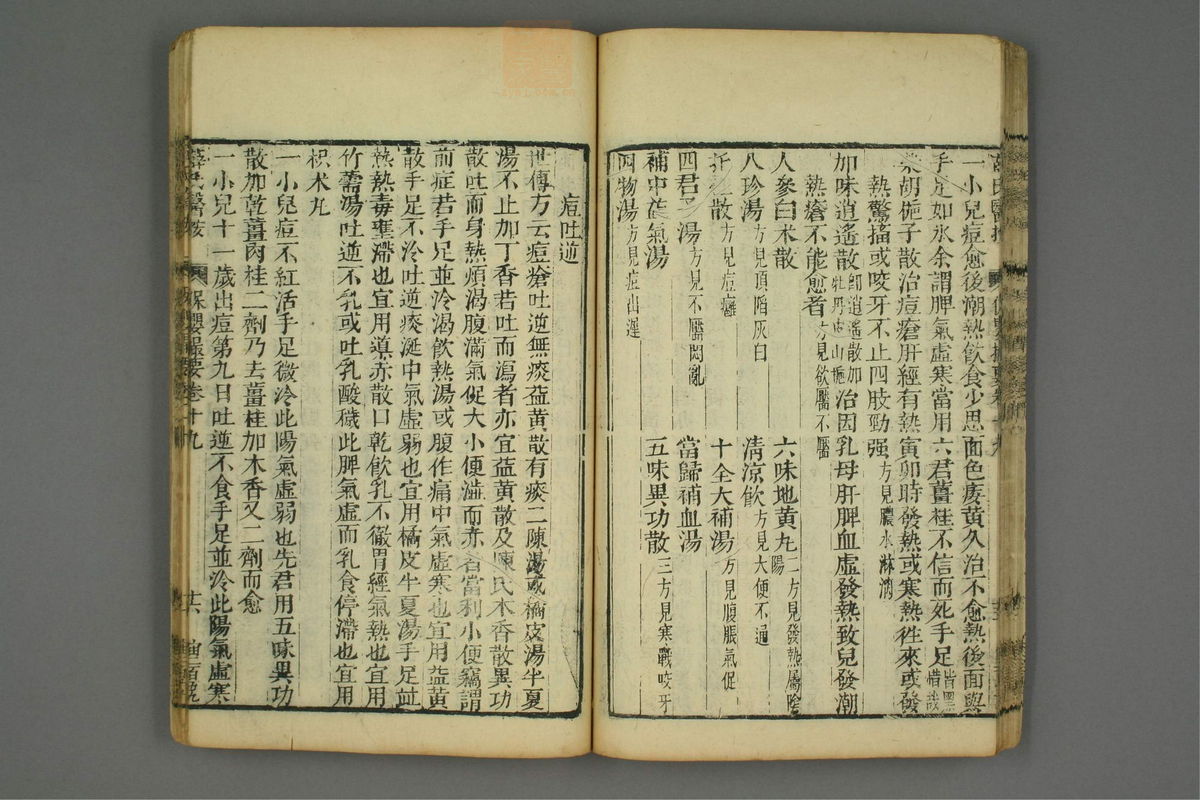 一小兒痘愈後潮熱飲食少思面色痿黃久治不愈熱後面與
手足如氷余謂脾氣虛寒當用六君薑桂不信而死手足皆黑惜哉
柴胡梔子散治痘瘡肝經有熱寅卯時發熱或寒熱徃來或發
熱驚搐或咬牙不止四肢勁强方見膿水淋漓
加味逍遙散即逍遙散加牡丹皮山梔治因乳母肝脾血虛發熱致兒發潮
熱瘡不能愈者方見欲靨不靨
人參白朮散 六味地黃丸二方見發熱屬陰陽
八珍湯方見頂陷灰白 清凉飲方見大便不通
托裏散方見痘癰 十全大補湯方見腹脹氣促
四君子湯方見不靨悶亂 當歸補血湯
補中益氣湯 五味異功散三方見寒戰咬牙
四物湯方見痘出遲
痘吐逆
世傳方云痘瘡吐逆無痰益黃散有痰二陳湯或橘皮湯半夏
湯不止加丁香若吐而瀉者亦宜益黃散及陳氏木香散異功
散吐而身熱煩渴腹滿氣促大小便澁而赤者當利小便竊謂
前症若手足並冷渴飲熱湯或腹作痛中氣虛寒也宜用益黃
散手足不冷吐逆痰涎中氣虛弱也宜用橘皮半夏湯手足並
熱熱毒壅滯也宜用導赤散口乾飲乳不徹胃經氣熱也宜用
竹茹湯吐逆不乳或吐乳酸穢此脾氣虛而乳食停滯也宜用
枳朮丸
一小兒痘不紅活手足微冷此陽氣虛弱也先君用五味異功
散加乾薑肉桂二劑乃去薑桂加木香又二劑而愈
一小兒十一歲出痘第九日吐逆不食手足並冷此陽氣虛寒
薛氏醫按 保嬰撮要卷十九 十六